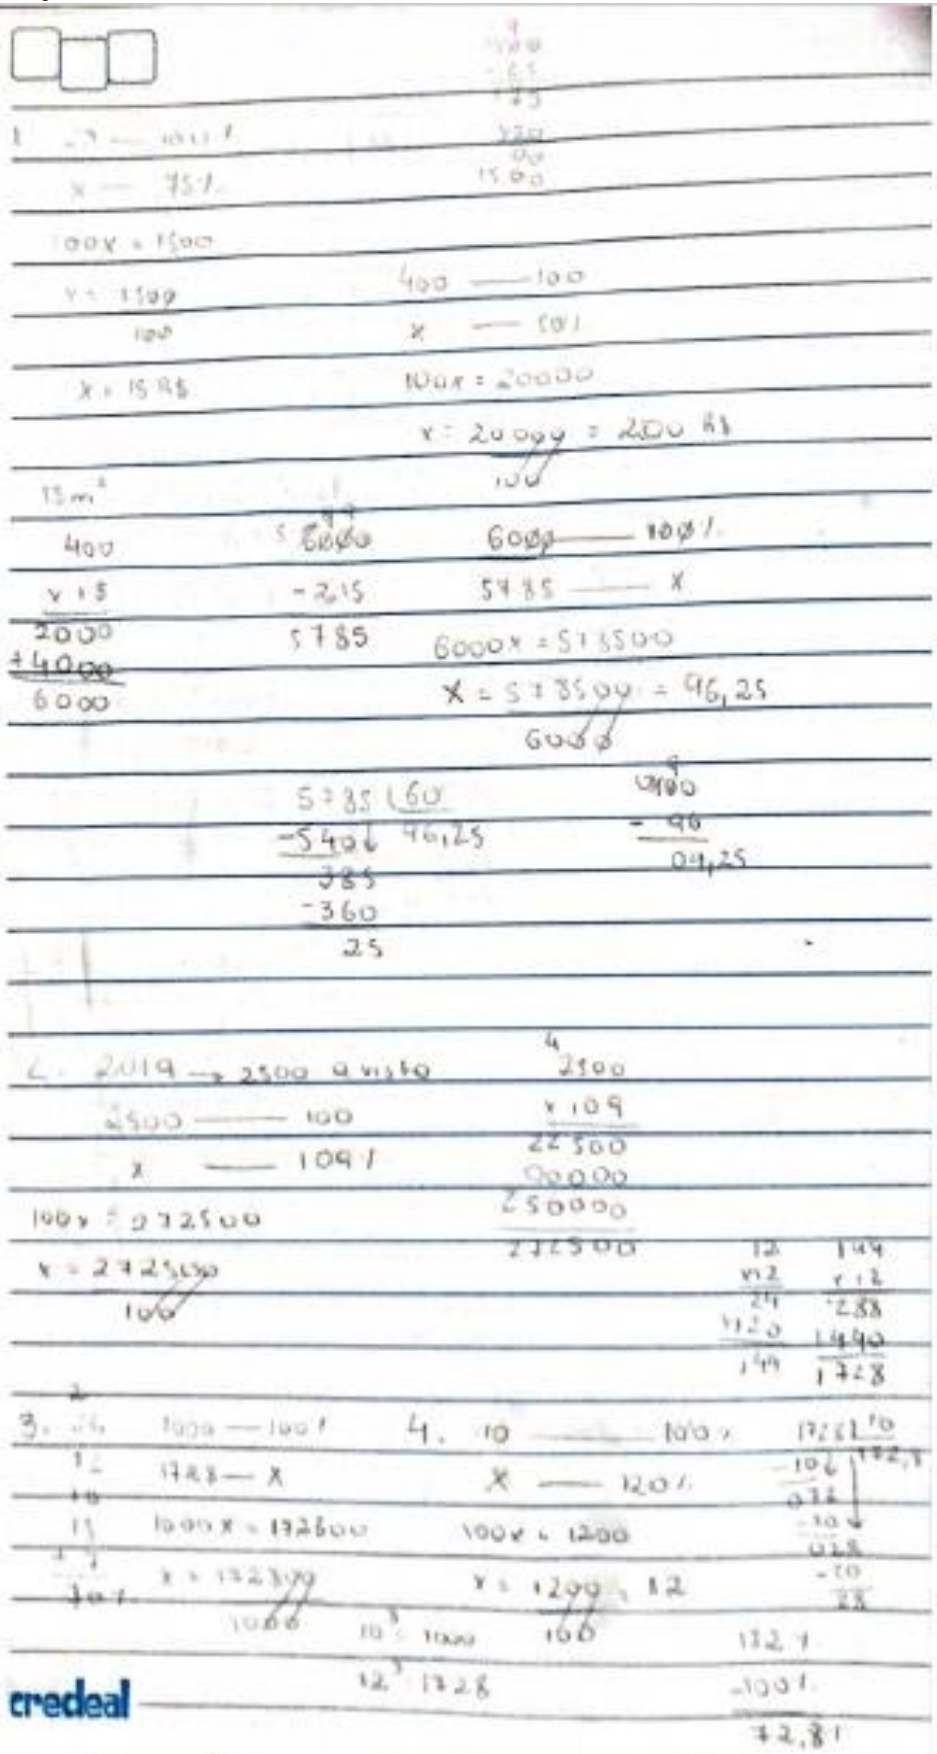 1
x — 75%
100x = 1500
x = 1500
100
x = 15 R$
1500
400 — 100
x — 50%
100x = 20000
x = 20000 = 200 R$
100
15 m²
400
x 15
2000
+4000
6000
6000
- 215
5785
6000 — 100%
5785 — x
6000x = 578500
x = 578500 = 96,25
6000
5785 60
-540 96,25
385
-360
25
100
- 96
04,25
2. 2019 → 2500 a vista
2500 — 100
x — 109%
100x = 272500
x = 272500
100
2500
x 109
22500
00000
250000
272500
12
x12
24
120
144
144
x 12
288
1440
1728
3.
1000 — 100%
1728 — x
1000x = 172800
x = 172800
1000
10³ = 1000
12³ 1728
4. 10 — 100%
x — 120%
100x = 1200
x = 1200 = 12
100
1728 10
-10 172,8
072
028
-20
28
-100%
72,8%
credeal